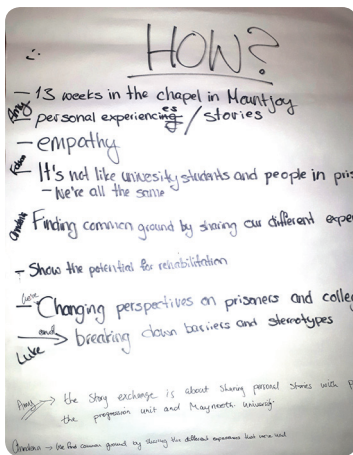 HOW?
- 13 weeks in the chapel in Mountjoy
Amy
personal experiences / stories
- empathy
- It's not like university students and people in pris
- We're all the same
Finding common ground by sharing our different expe
- Show the potential for rehabilitation
- Changing perspectives on prisoners and colleg
and
Luke
breaking down barriers and sterotypes
Amy → the story exchange is about sharing personal stories with p
the progression unit and Maynooth University.
- We find common ground by sharing the different experiences that we've had